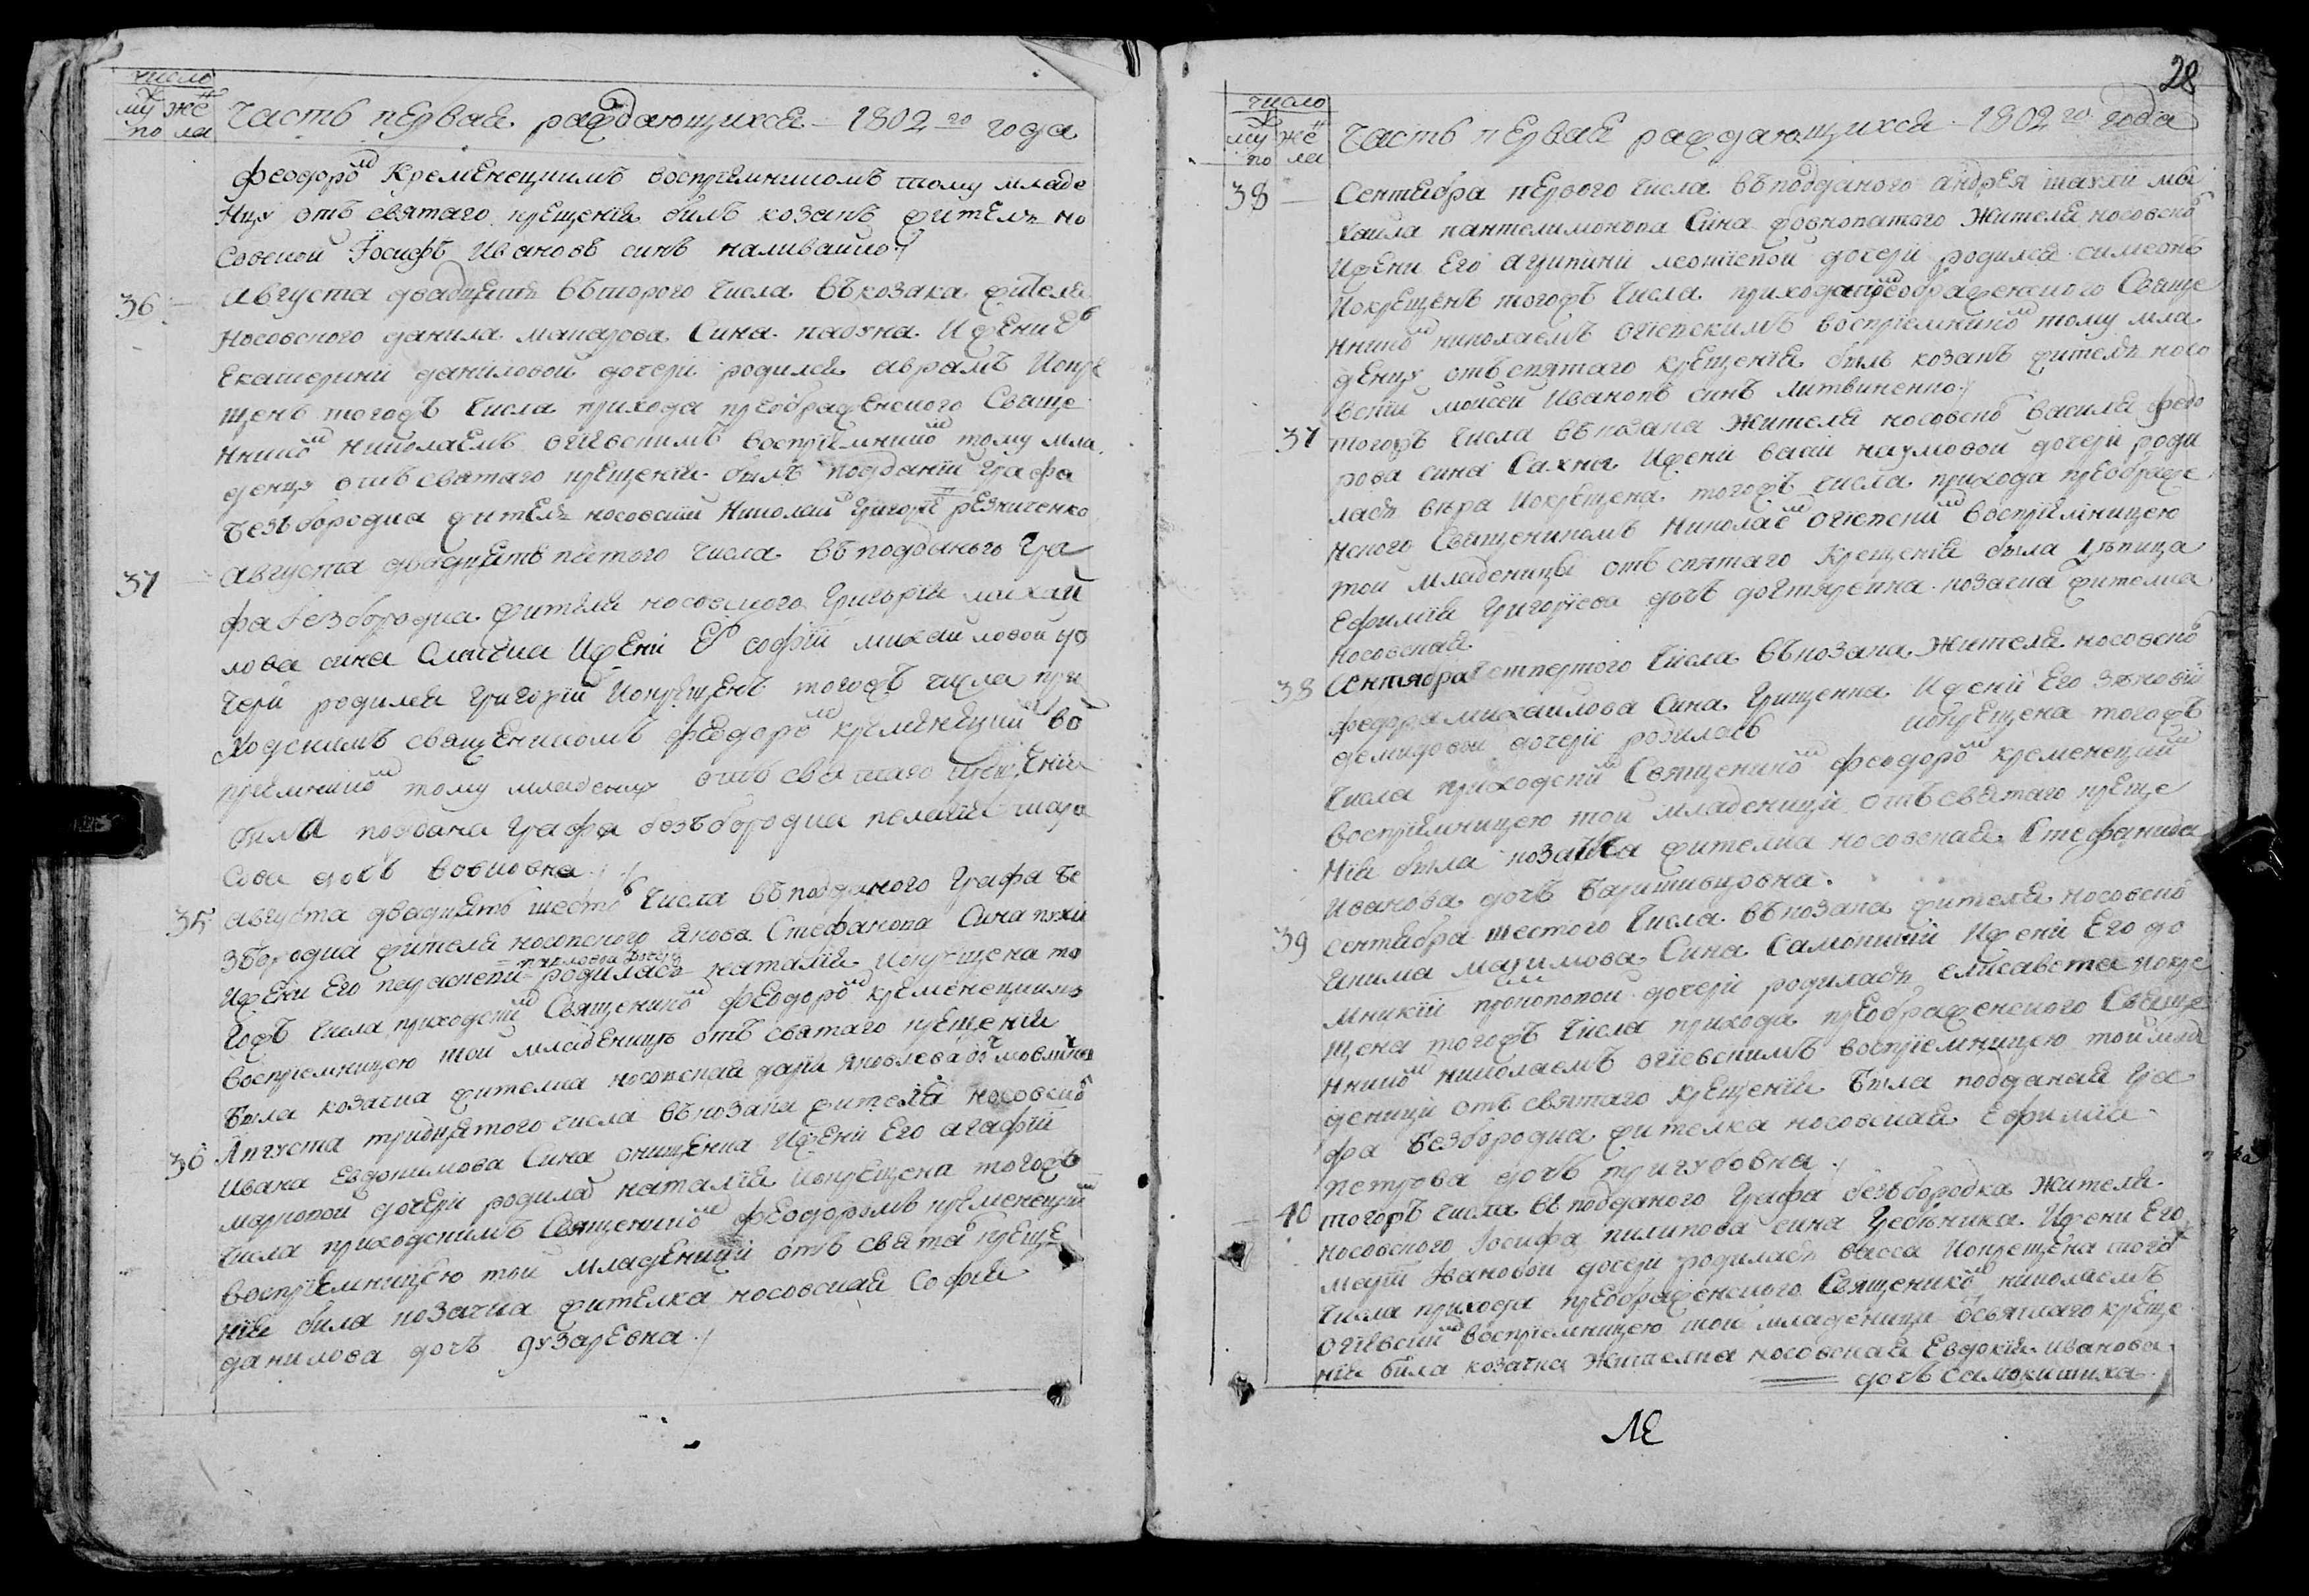 число
муж жен
по ла
Часть первая раждающихся 1802 го года
феодором Кременецкимъ воспріемникомъ тому младе
нцу отъ святаго крещенія билъ козакъ житель но
совской Іосифъ Ивановъ синъ наливайко
36 Августа двадцять второго числа въ козака жителя
носовского данила макарова сина ижени его
Екатерини даниловой дочери родился аврамъ икре
щенъ тогожъ числа прихода преображенского свяще
нникомъ николаемъ огіевскимъ воспріемником тому мла
денцу отъ святаго крещенія билъ подданій графа
безъбородка житель носовскій николай григорі резниченко
37 августа двадцять пятого числа въ подданого гра
фа безбородка жителя носовского григорія михай
лова сина иженѣ его софіи михайловой до
чери родился григорій икрещенъ тогожъ числа при
ходскимъ священикомъ феодором кременецким вос
пріемником тому младенцу отъ святаго крещенія
била поддана графа безъбородка пелагія тара
сова дочь вовковна
35 августа двадцять шестого числа въ подданого графа бе
збородка жителя носовского якова стефанова сина
ижени его параскевіи павловой дочери родилась наталія икрещена то
гожъ числа приходским священиком феодором кременецкимъ
воспріемницею той младеницѣ отъ святаго крещенія
была козачка жителка носовская дарія яковлева
36 августа тридцятого числа въ козака жителя носовского
ивана евдокимова сина онищенка иженѣ его агафіи
марковой дочери родилас наталія икрещена тогожъ
числа приходскимъ священиком феодоромъ кременецким
воспріемницею той младеници отъ свята креще
нія била козачка жителка носовская софія
данилова дочь
28
число
муж жен
по ла
Часть первая раждающихся 1802 го года
38 Сентября первого числа въ подданого андрея ми
хаила пантелимонова сина жителя носовского
ижени его агрипини леонтіевой дочери родился симеонъ
икрещенъ тогожъ числа прихода преображенского свяще
нником николаемъ огіевскимъ воспріемником тому мла
денцу отъ святаго крещенія былъ козакъ житель носо
вскій моисей ивановъ синъ литвиненко
37 тогожъ числа въ козака жителя носовско василя федо
рова сина сахна иженѣ наумовой дочери роди
лась вѣра икрещена тогожъ числа прихода преображе
нского священикомъ николаем огіевским воспріемницею
той младеници отъ святаго крещенія была дѣвица
ефимія григоріева дочь козачка жителка
носовская
38 Сентября четвертого числа въ козака жителя носовско
федора михаилова сина грищенка иженѣ его зѣновіи
демидовой дочери родилась икрещена тогожъ
числа приходским священиком феодором кременецким
воспріемницею той младеници отъ святаго креще
нія была козачка жителка носовская стефанида
иванова дочь
39 сентября шестого числа въ козака жителя носовско
якима максимова сина иженѣ его до
мникіи прокоповой дочери родилась елисавета икре
щена тогожъ числа прихода преображенского свяще
нником николаемъ огіевскимъ воспріемницею той мла
деници отъ святаго крещенія была подданая гра
фа безбородка жителка носовская ефимія
петрова дочь тригубовна
40 тогожъ числа въ подданого графа безъбородка жителя
носовского іосифа пилипова сина гребѣника ижени его
маріи ивановой дочери родилась васса икрещена тогож
числа прихода преображенского священиком николаемъ
огіевским воспріемницею той младеници святаго креще
нія била козачка жителка носовская евдокія иванова
дочь
ЛЕ